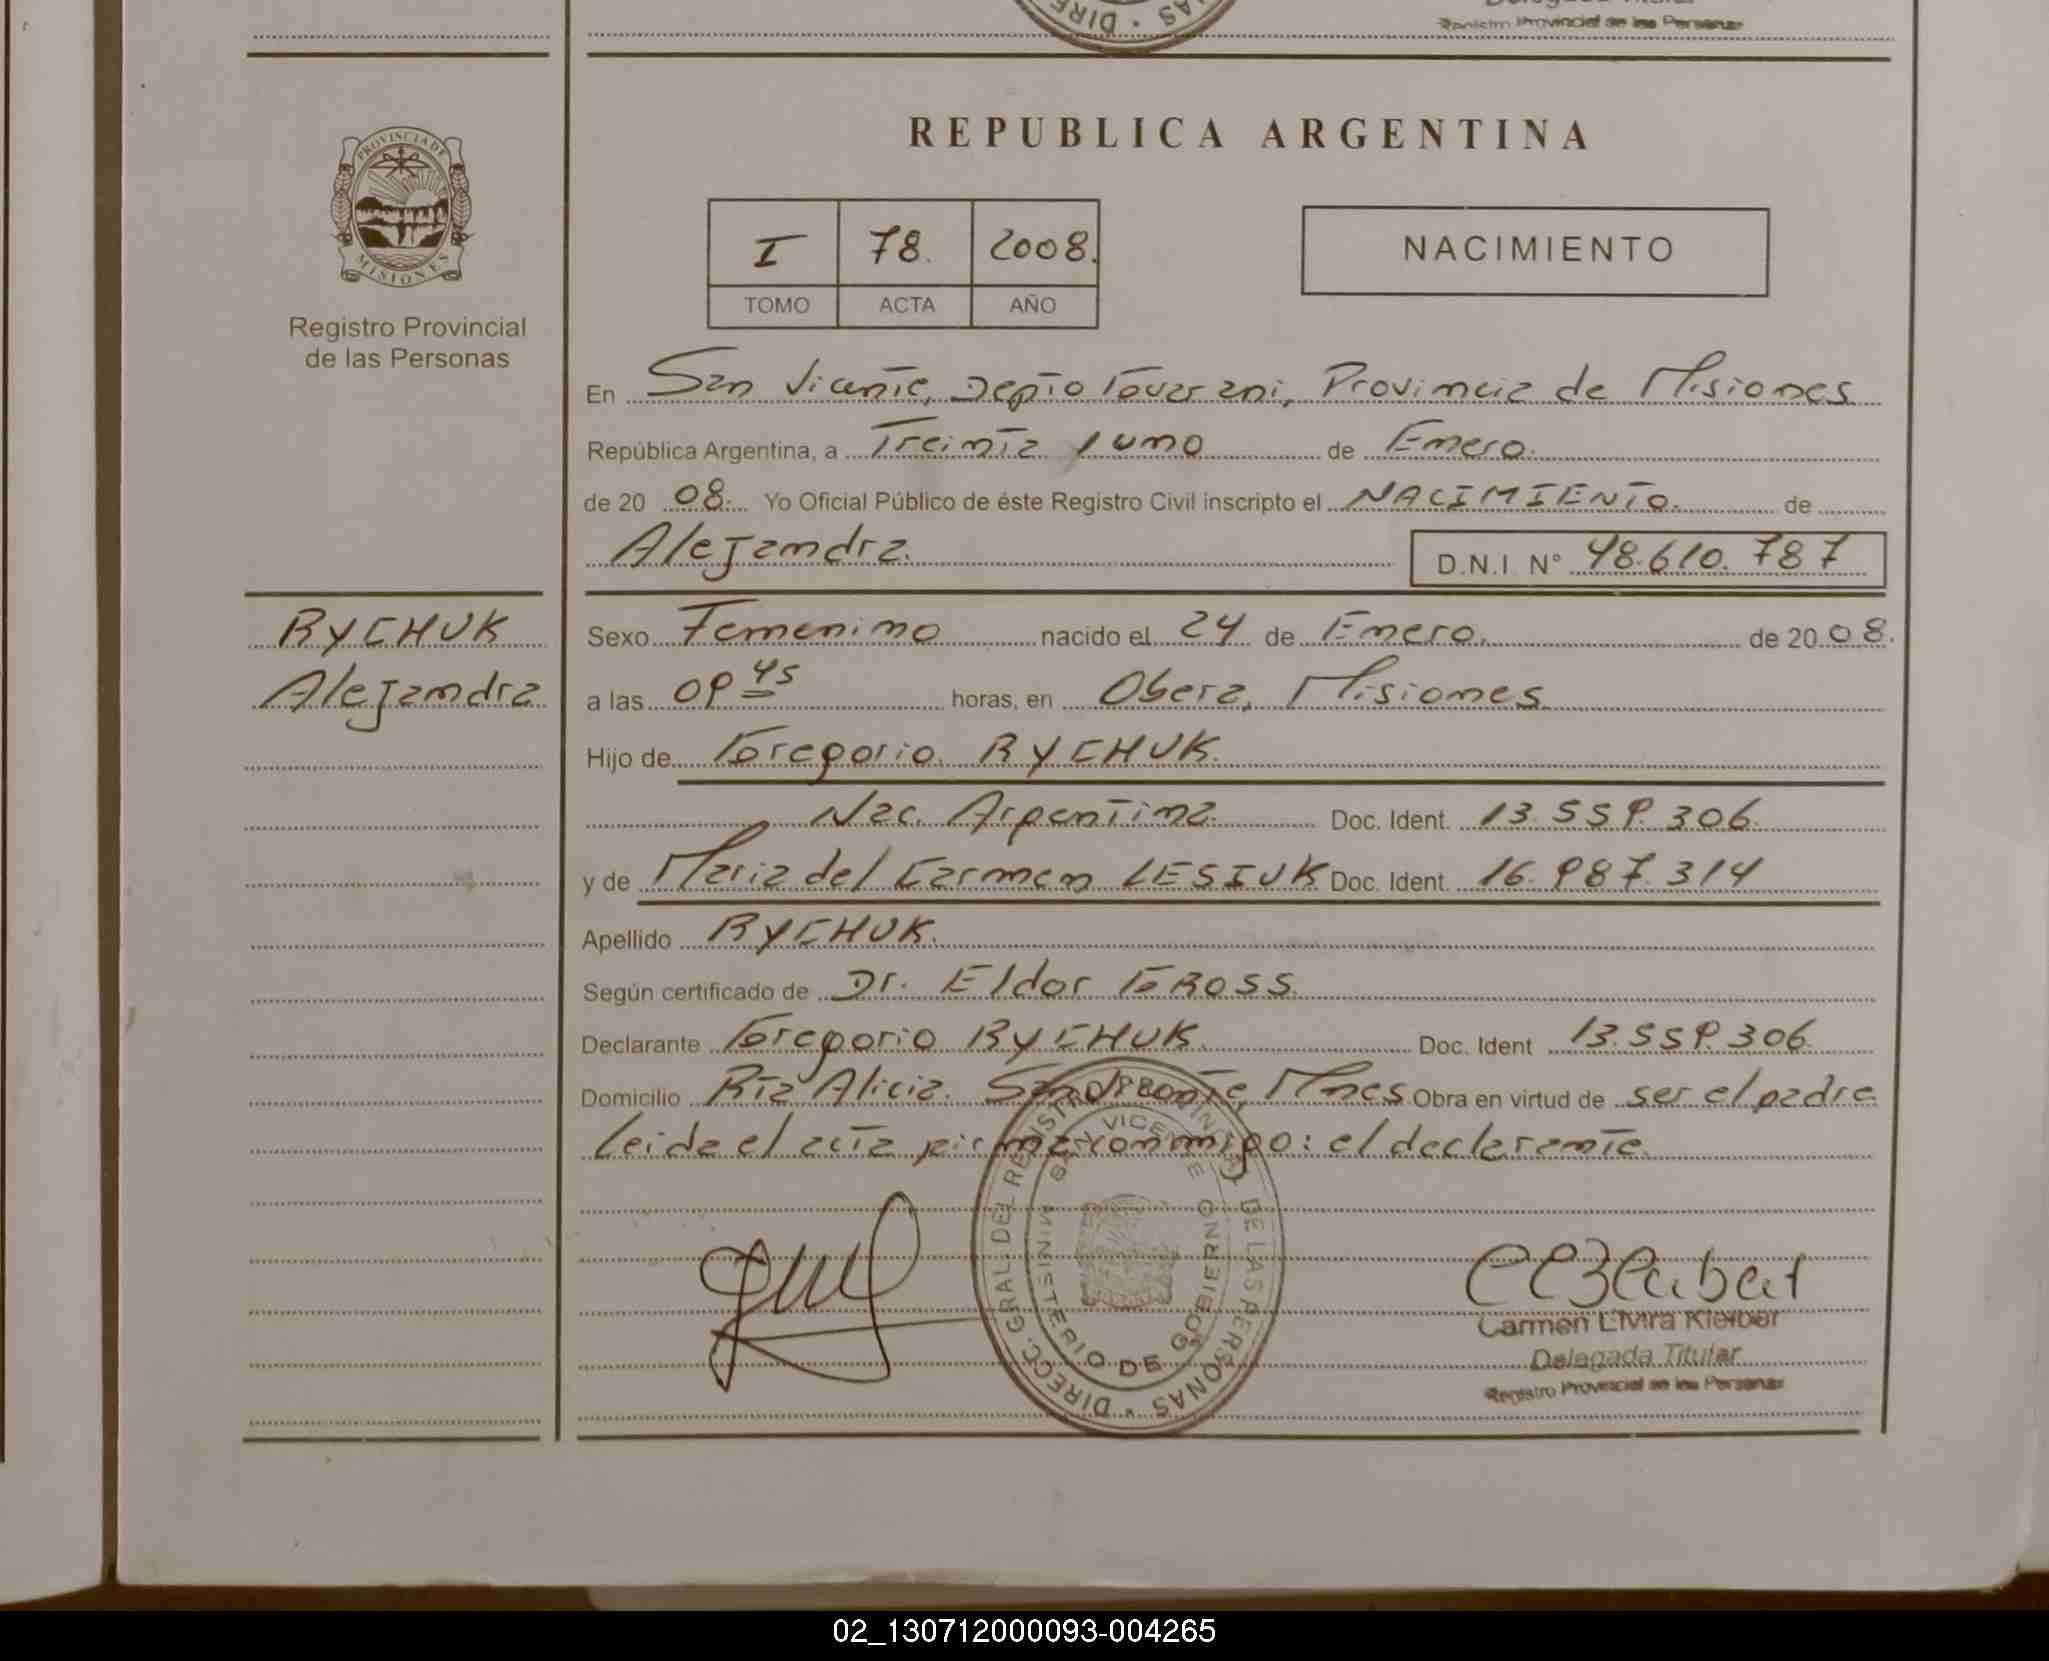 Registro Provincial de las Personas
REPUBLICA ARGENTINA
PROVINCIA DE
MISIONES
I 78. 2008.
TOMO ACTA AÑO
NACIMIENTO
Registro Provincial
de las Personas
En San Vicente, Depto Guarani, Provincia de Misiones
República Argentina, a Treinta y uno de Enero.
de 20 08. Yo Oficial Público de éste Registro Civil inscripto el NACIMIENTO. de
Alejandra. D.N.I. N° 48.610.787
RYCHUK
Alejandra
Sexo Femenino nacido el 24 de Enero. de 20 08.
a las 09 45 horas, en Obera, Misiones
Hijo de Gregorio RYCHUK.
Nac. Argentina. Doc. Ident. 13.559.306.
y de Maria del Carmen LESIUK Doc. Ident. 16.987.314
Apellido RYCHUK.
Según certificado de Dr. Eldor GROSS.
Declarante Gregorio RYCHUK. Doc. Ident 13.559.306.
Domicilio Pta Alicia. San Vicente, Mnes Obra en virtud de ser el padre
Leida el acta firma conmigo: el declarante.
DIRECC. GRAL. DEL REGISTRO PROVINCIAL DE LAS PERSONAS
SAN VICENTE
MINISTERIO DE GOBIERNO
Carmen Elvira Kleiber
Delegada Titular
Registro Provincial de las Personas
02_130712000093-004265